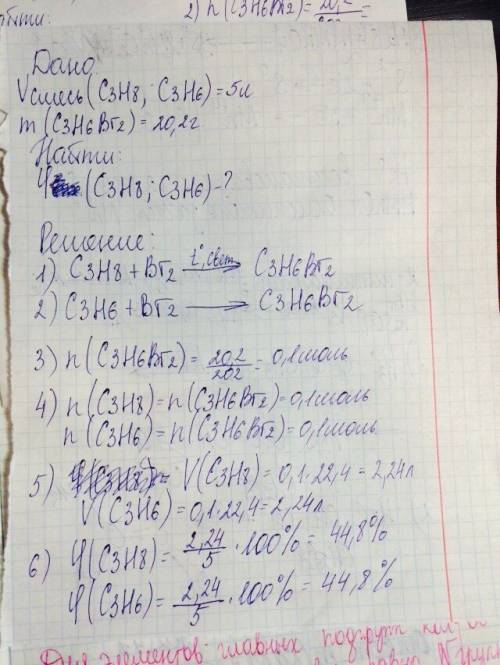 2) n(C3H6Br2) = 20,2 =
Дано
Vсмесь(C3H8; C3H6) = 5л
m(C3H6Br2) = 20,2г
Найти:
φ (C3H8; C3H6) - ?
Решение:
1) C3H8 + Br2 t°, свет → C3H6Br2
2) C3H6 + Br2 → C3H6Br2
3) n(C3H6Br2) = 20,2/202 = 0,1моль
4) n(C3H8) = n(C3H6Br2) = 0,1моль
n(C3H6) = n(C3H6Br2) = 0,1моль
5) V(C3H8) = 0,1·22,4 = 2,24л
V(C3H6) = 0,1·22,4 = 2,24л
6) φ(C3H8) = 2,24/5 · 100% = 44,8%
φ(C3H6) = 2,24/5 · 100% = 44,8%
Для элементов главных подгрупп